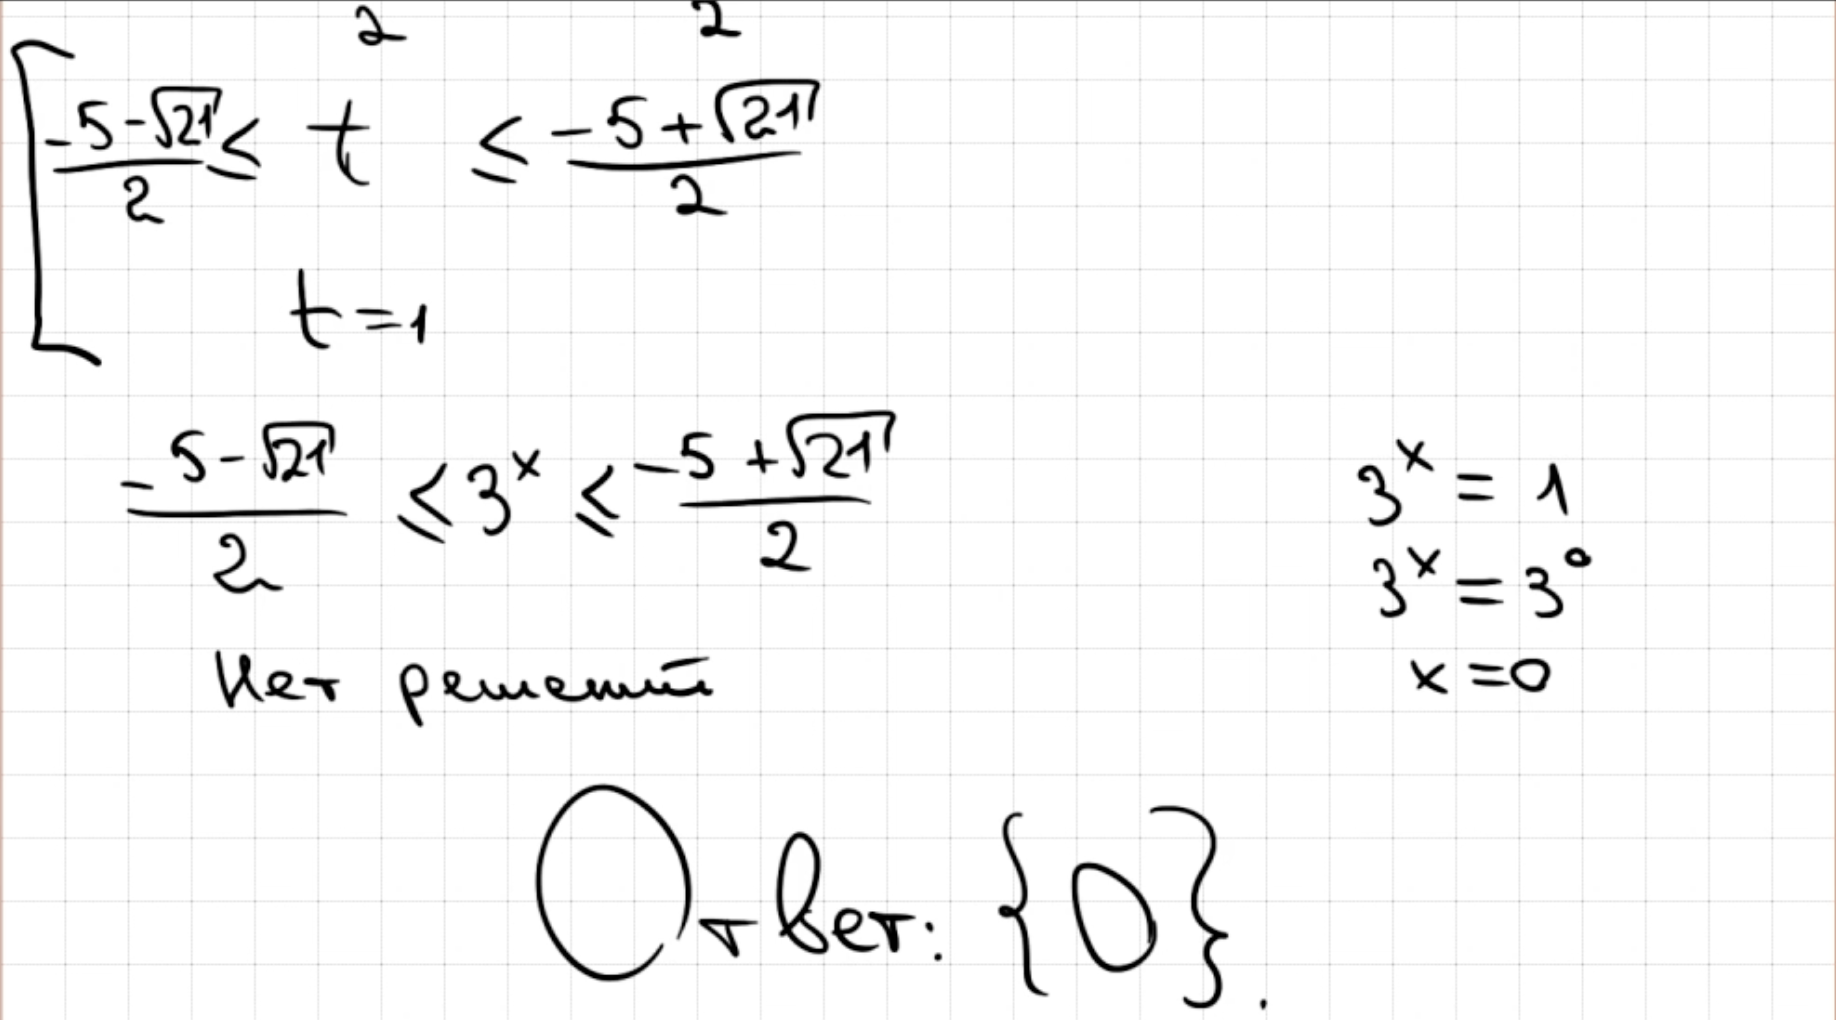 2 2
[ (-5-√21)/2 ≤ t ≤ (-5+√21)/2
t=1
(-5-√21)/2 ≤ 3^x ≤ (-5+√21)/2
Нет решений
3^x = 1
3^x = 3^0
x=0
Ответ: {0}.